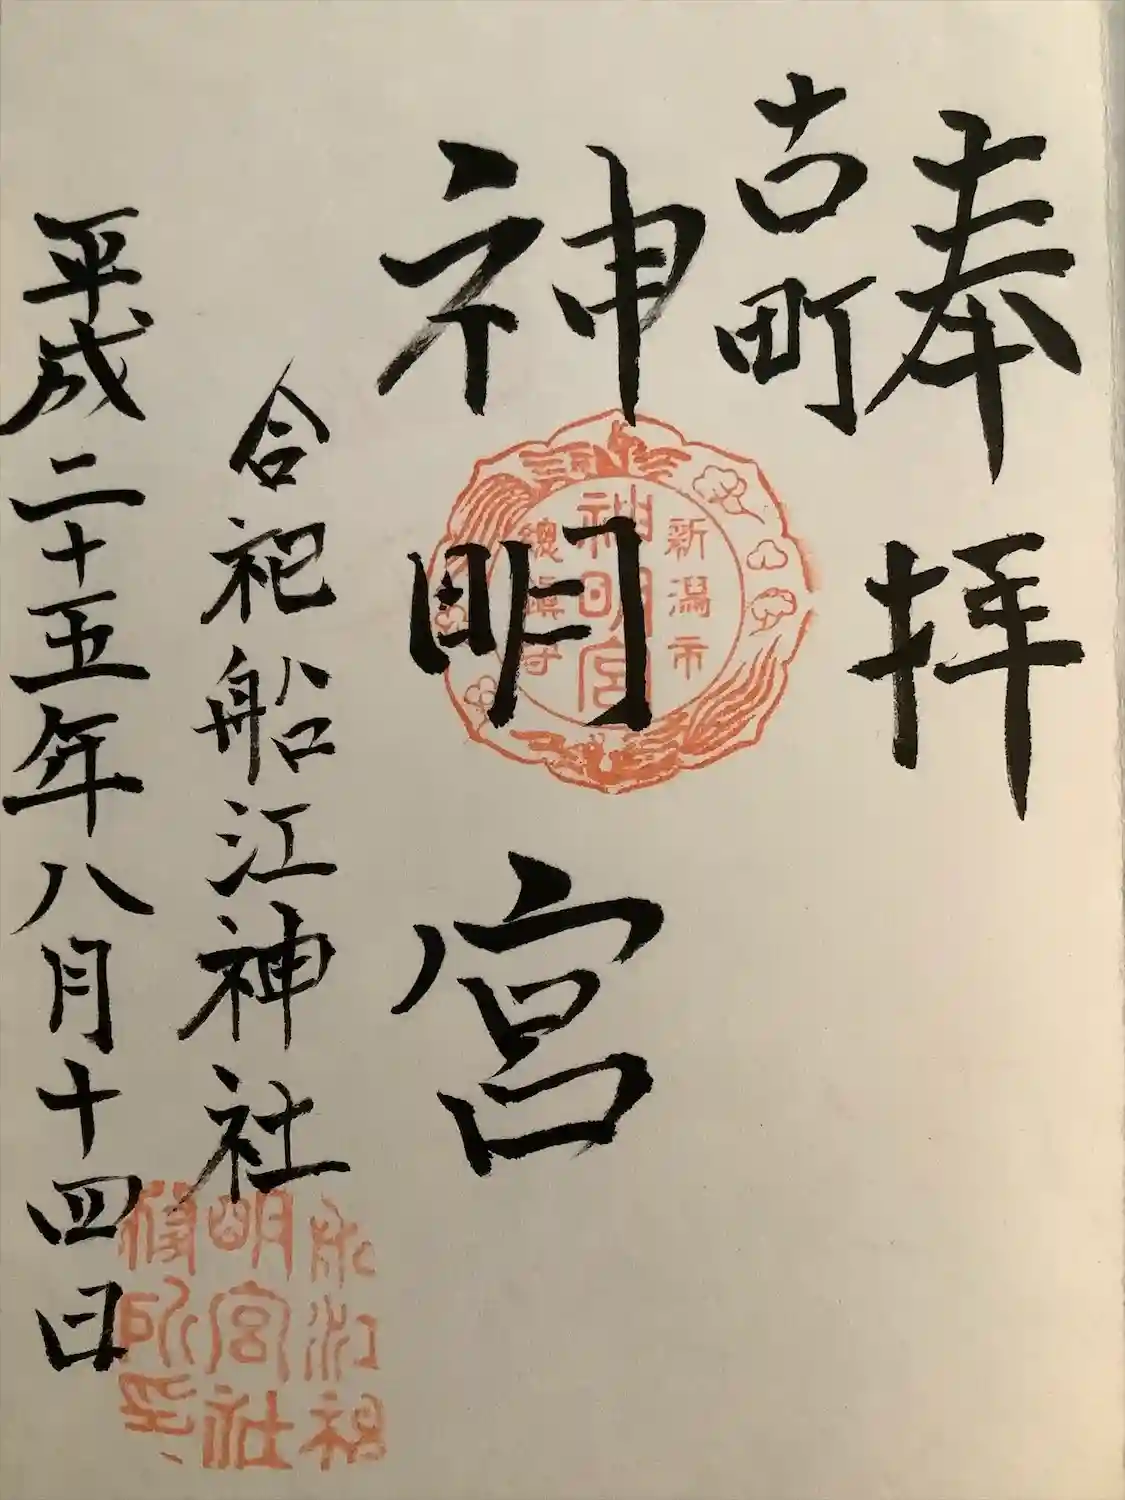 奉拝
古町
神明宮
合祀船江神社
平成二十五年八月十四日
新潟市
神明宮
總鎮守
明宮社